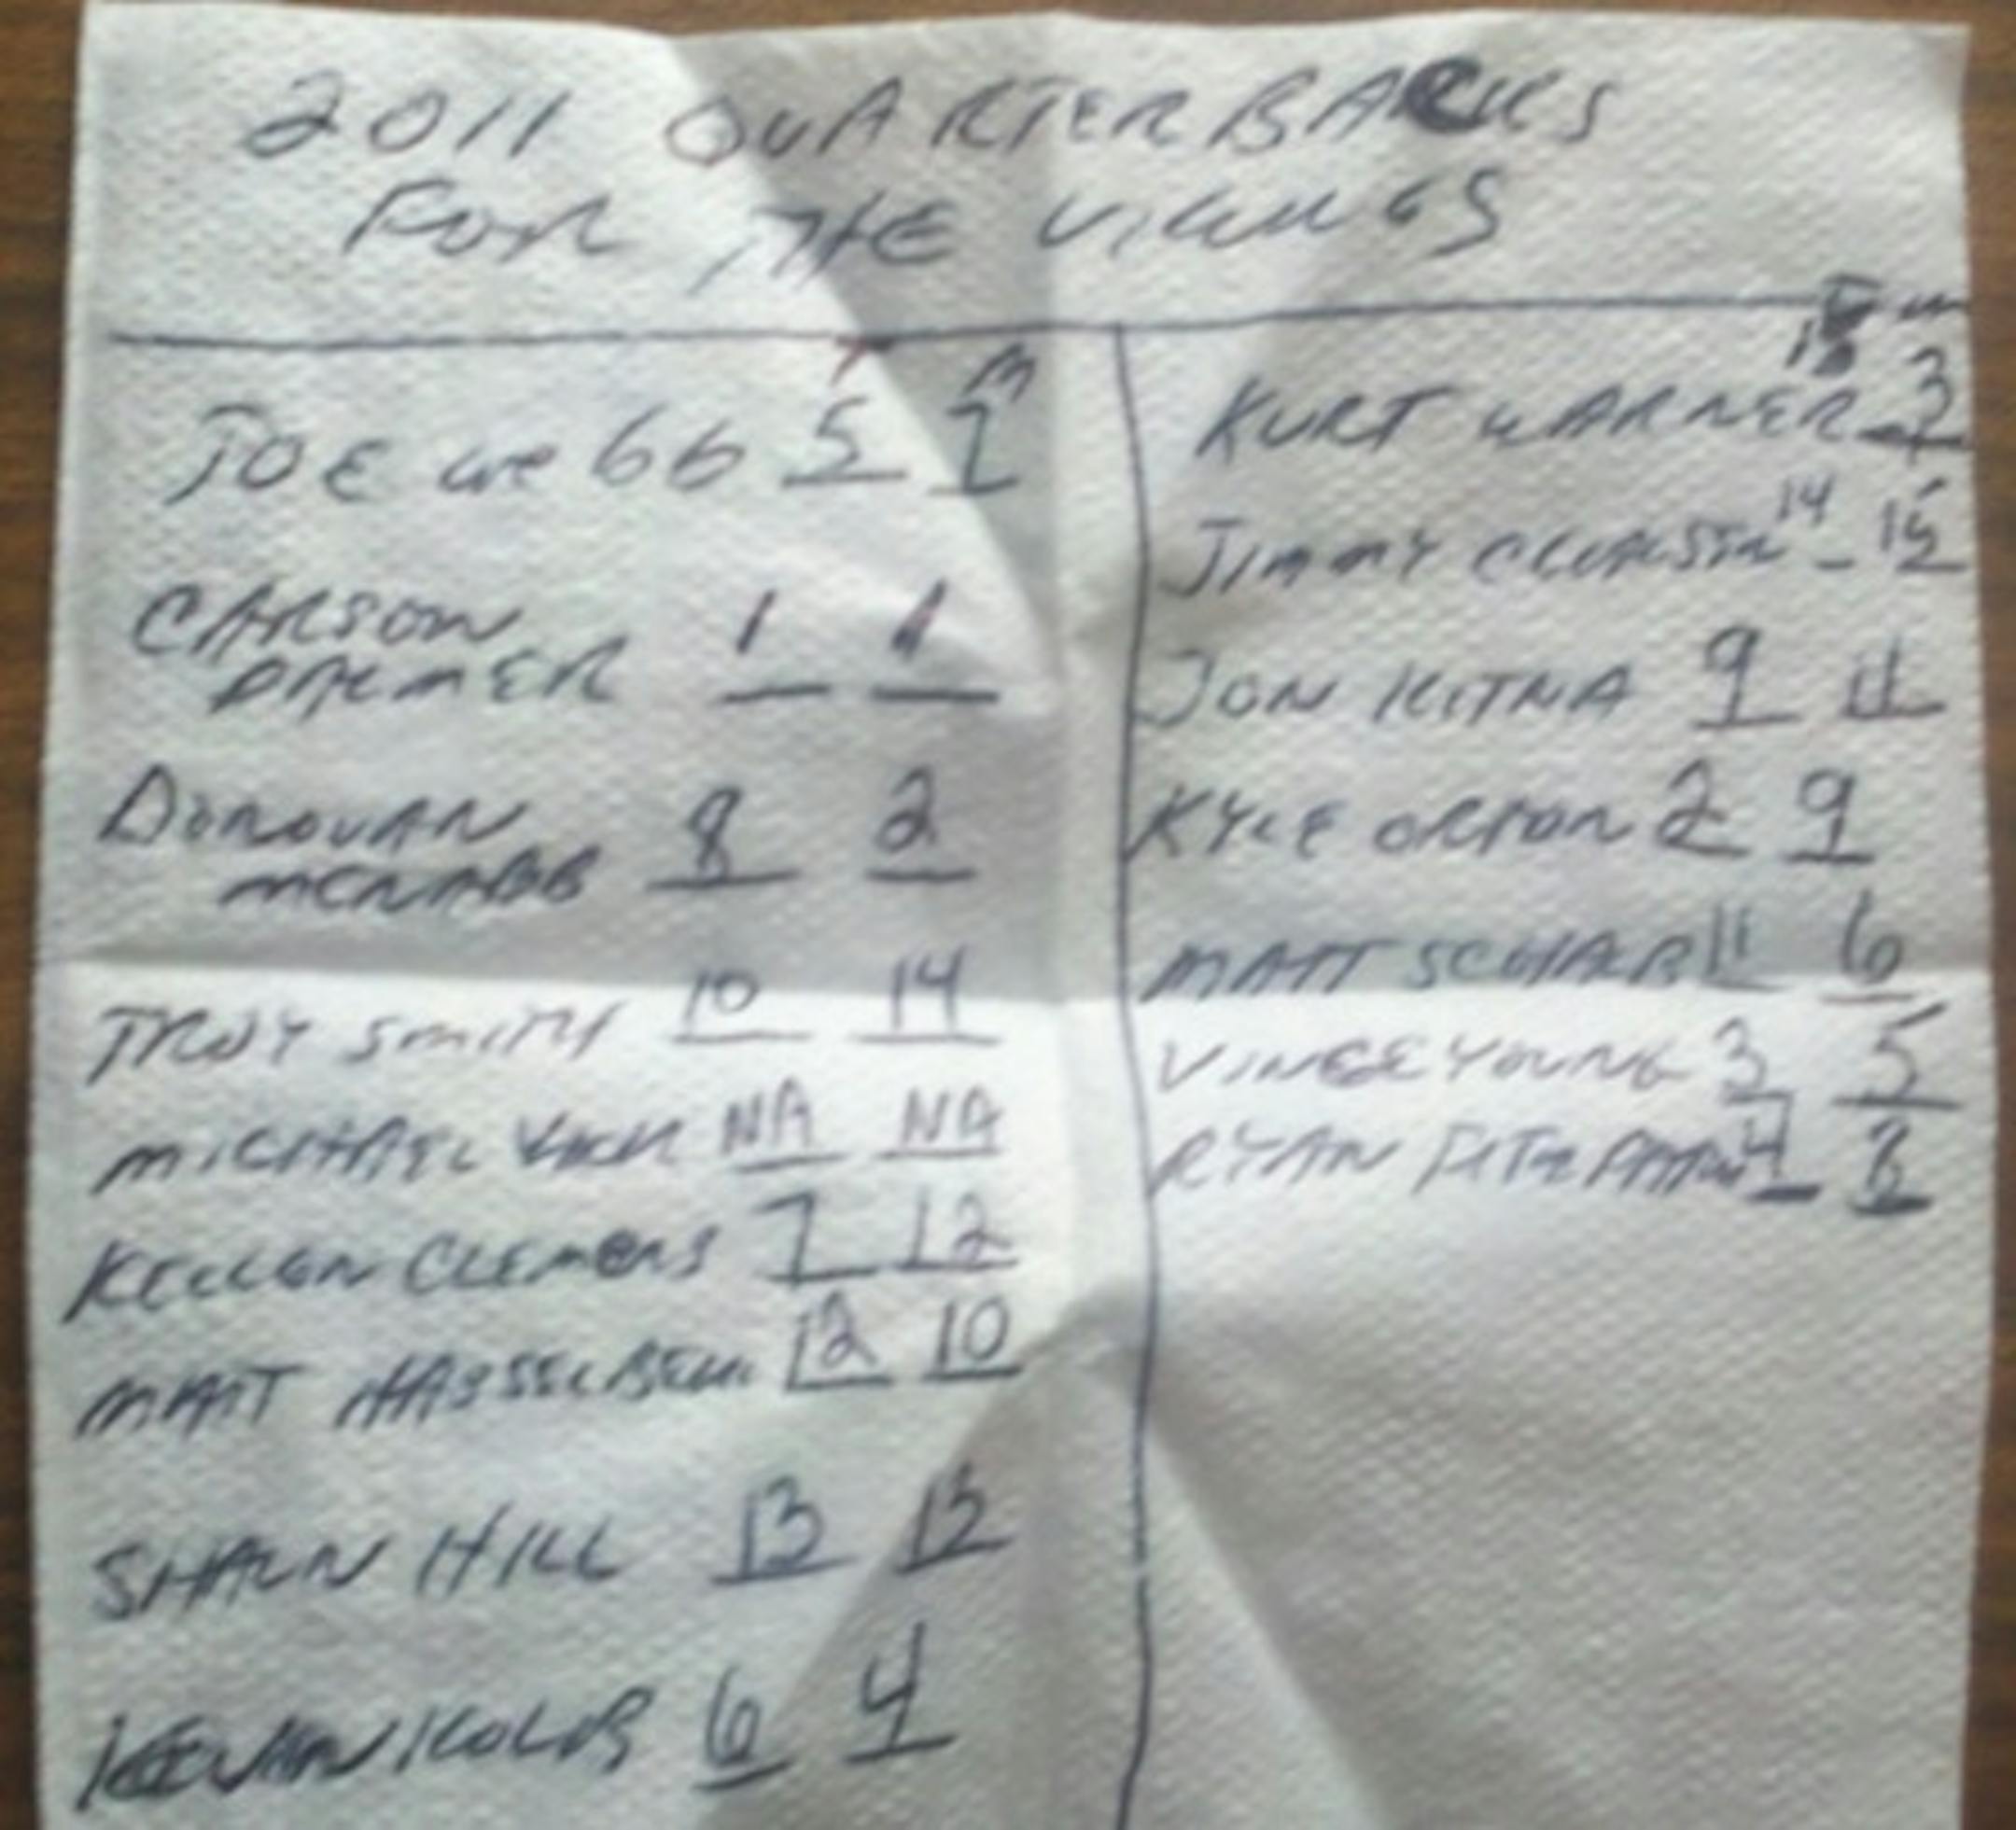 2011 QUARTERBACKS
FOR THE VIKINGS
M
JOE WE 66 5 7
CARSON
PALMER 1 1
DONOVAN
MCNABB 8 2
TROY SMITH 10 14
MICHAEL VICK NA NA
KELLEN CLEMENS 7 12
MATT HASSELBECK 12 10
SHAUN HILL 13 13
KEVIN KOLB 6 4
M
KURT WARNER 3
JIMMY CLAUSEN 14 15
JON KITNA 9 11
KYLE ORTON 2 9
MATT SCHAUB 11 6
VINCE YOUNG 3 5
RYAN FITZPATRICK 4 8